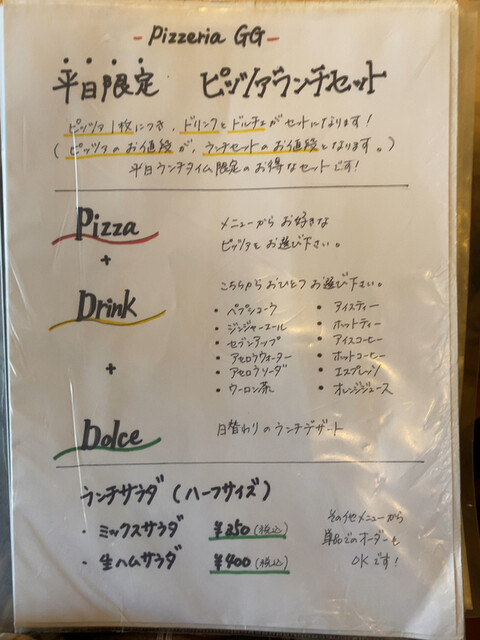 - Pizzeria GG -
平日限定 ピッツァランチセット
ピッツァ1枚につき、ドリンクとドルチェがセットになります!
(ピッツァのお値段が、ランチセットのお値段となります。)
平日ランチタイム限定のお得なセットです!
Pizza
メニューからお好きな
ピッツァをお選び下さい。
+
Drink
こちらからおひとつお選び下さい。
・ペプシコーラ
・ジンジャーエール
・セブンアップ
・アセロラウォーター
・アセロラソーダ
・ウーロン茶
・アイスティー
・ホットティー
・アイスコーヒー
・ホットコーヒー
・エスプレッソ
・オレンジジュース
+
Dolce
日替わりのランチデザート
ランチサラダ(ハーフサイズ)
・ミックスサラダ ¥350(税込)
・生ハムサラダ ¥400(税込)
その他メニューから
単品でのオーダーも
OKです!